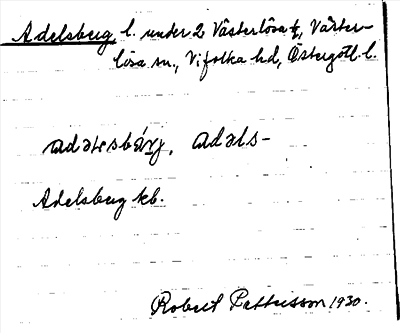 Adelsberg, l. under 2 Västerlösa ½, Väster-
lösa sn., Vifolka hd, Östergötl. l.
adəlsbárj, adəls-
Adelsberg kb.
Robert Pettersson 1930.